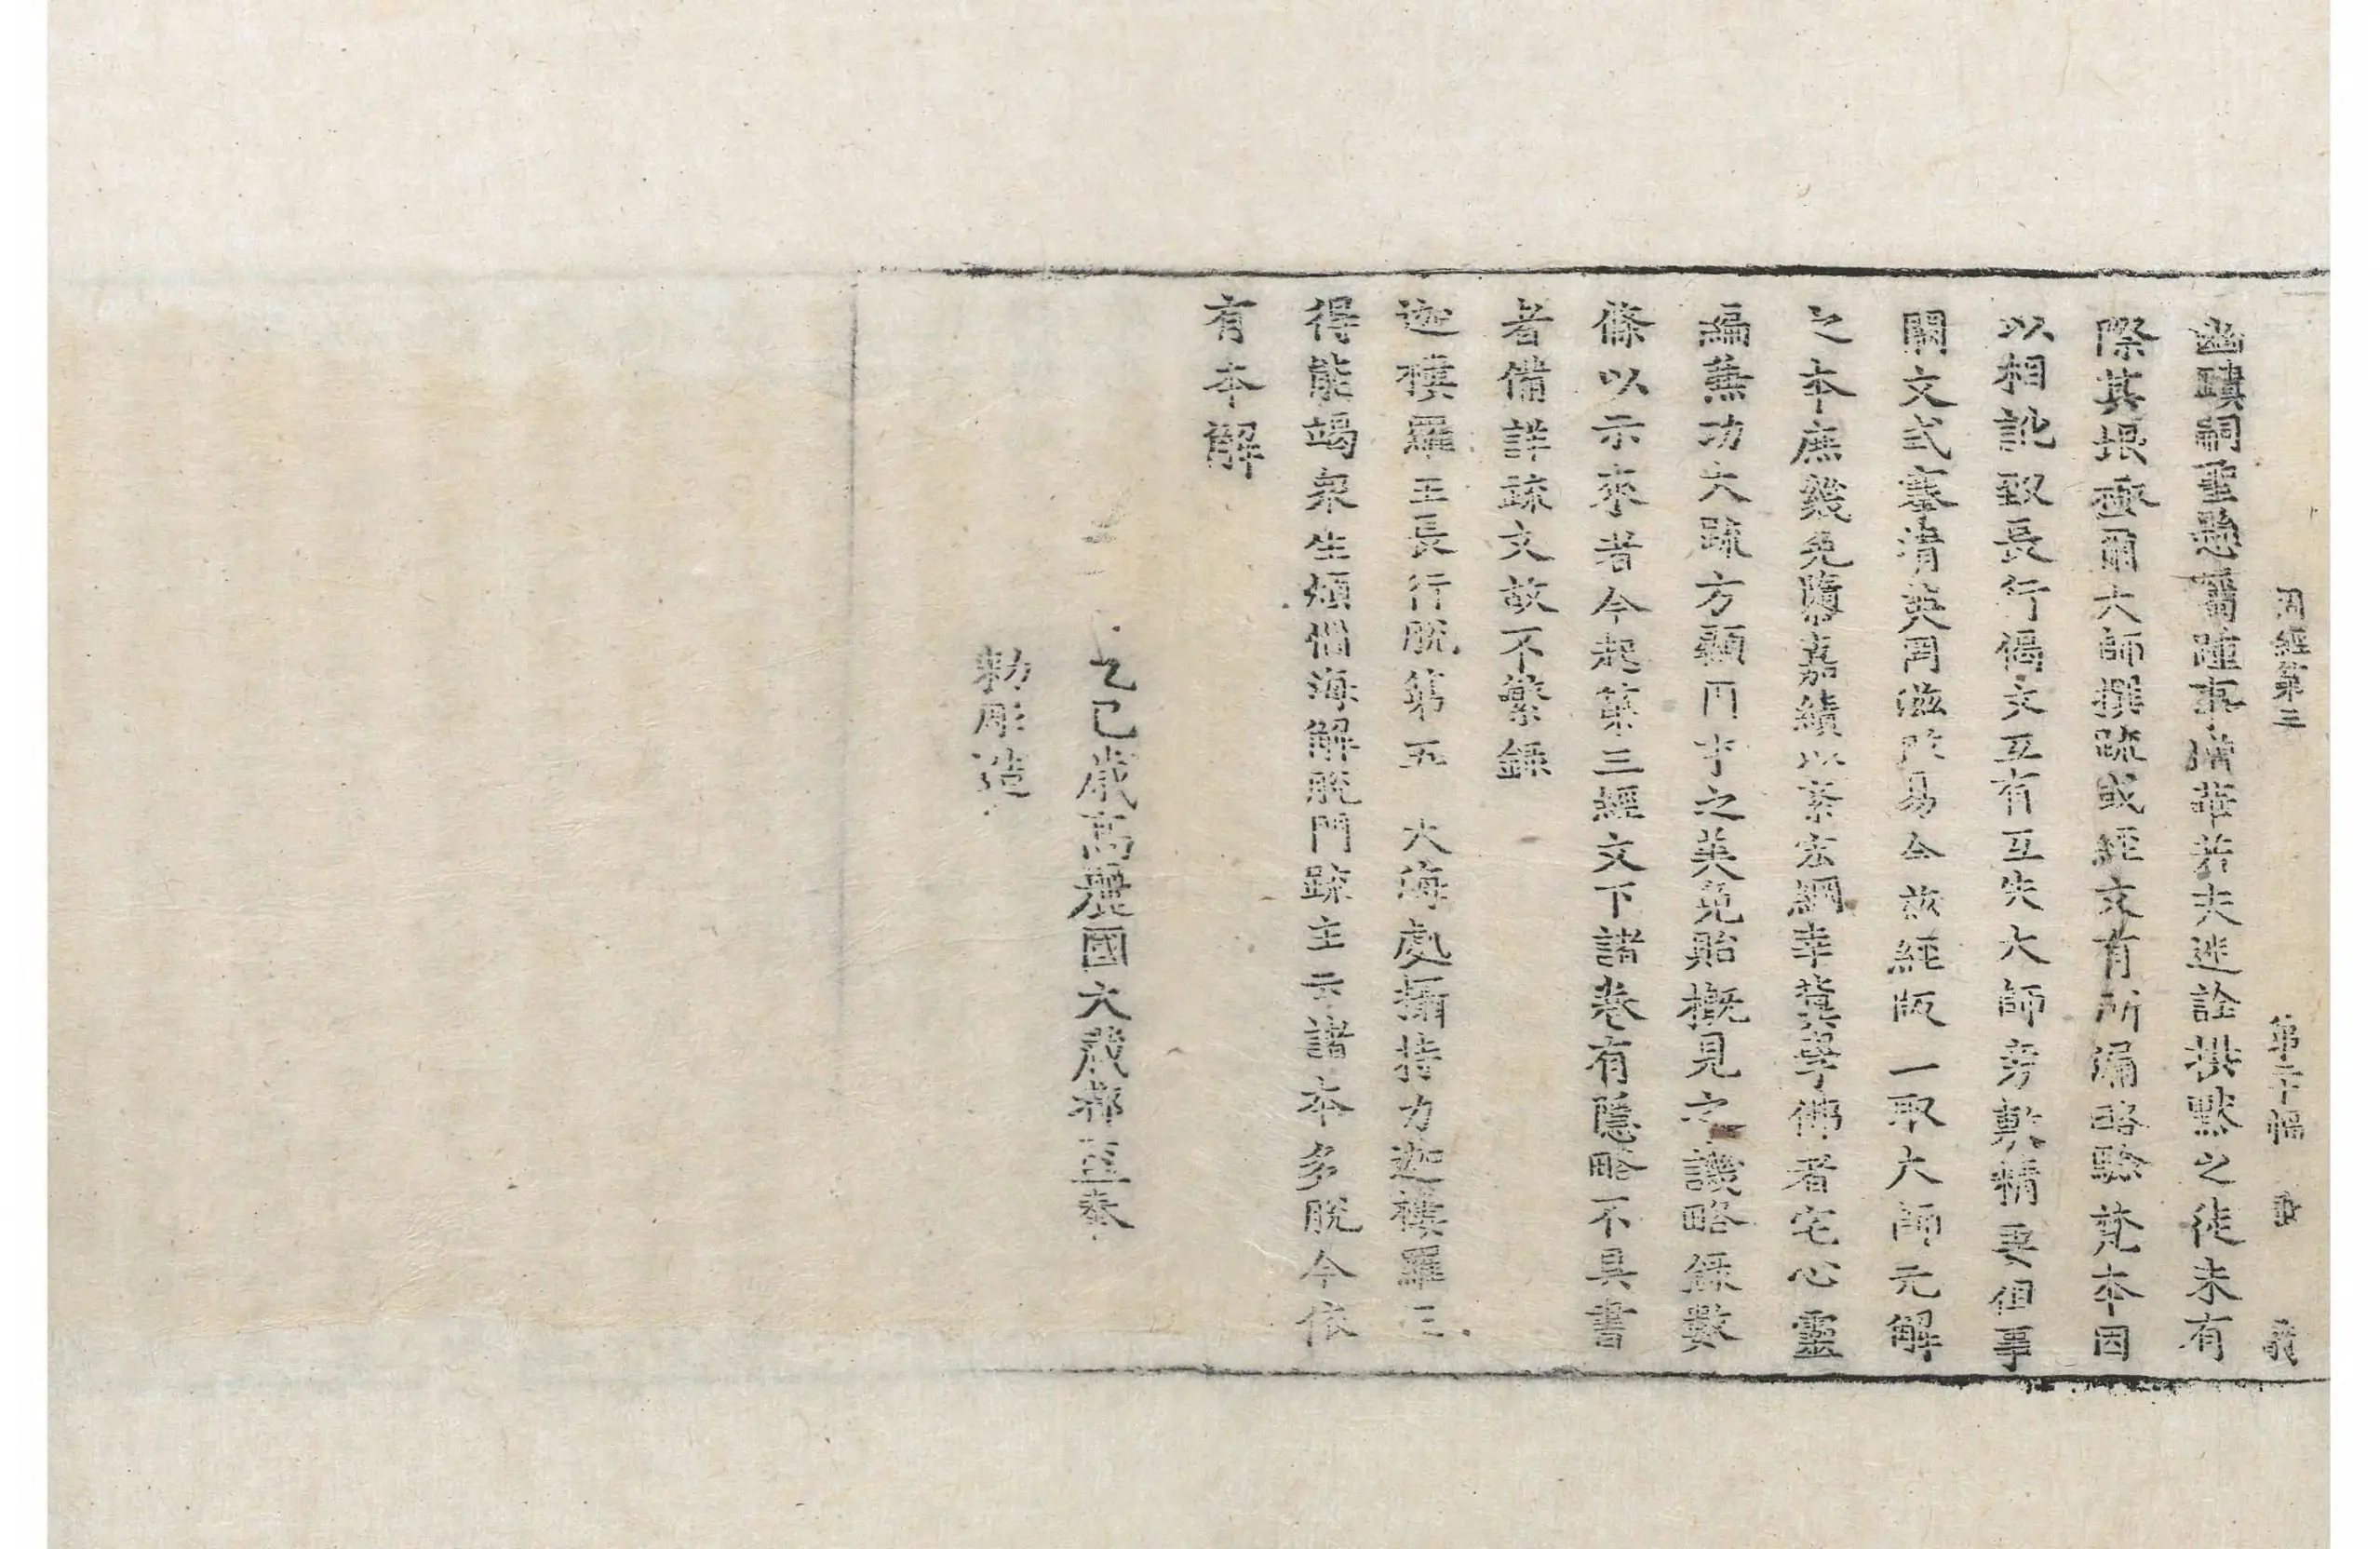 周經第三 第二十幅
幽賾嗣聖 事 華若夫造詮撰默之徒未有
際其垠極爾大師撰疏或經文有所漏略驗梵本因
以相訛取長行偈文互有互失大師旁敷精要但事
闕文 寡清英罔滋 易今故經版一取大師元解
之本庶幾免隳嘉績以紊宏綱幸冀學佛者宅心靈
編兼功大疏方顯円宗之美免貽概見之譏略錄數
條以示來者今起第三經文下諸卷有隱略不具書
者備詳疏文故不繁錄
迦樓羅王長行脫第五 大海處攝持力迦樓羅王
得能竭衆生煩惱海解脫門疏主云諸本多脫今依
有本解
乙巳歲高麗國大藏都監奉
勅彫造